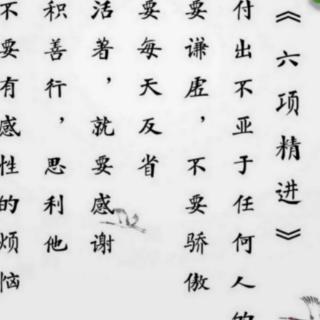 《六项精进》
付出不亚于任何人的
要谦虚，不要骄傲
要每天反省
活着，就要感谢
积善行，思利他
不要有感性的烦恼